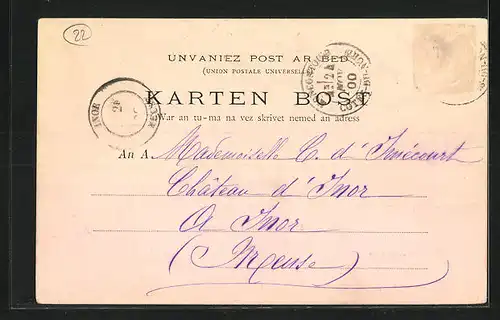 22
UNVANIEZ POST AR BED
(UNION POSTALE UNIVERSELLE)
KARTEN BOST
War an tu-ma na vez skrivet nemed an adress
INOR
MEUSE
An A. Mademoiselle C. d'Imécourt
Château d'Inor
A Inor
(Meuse)